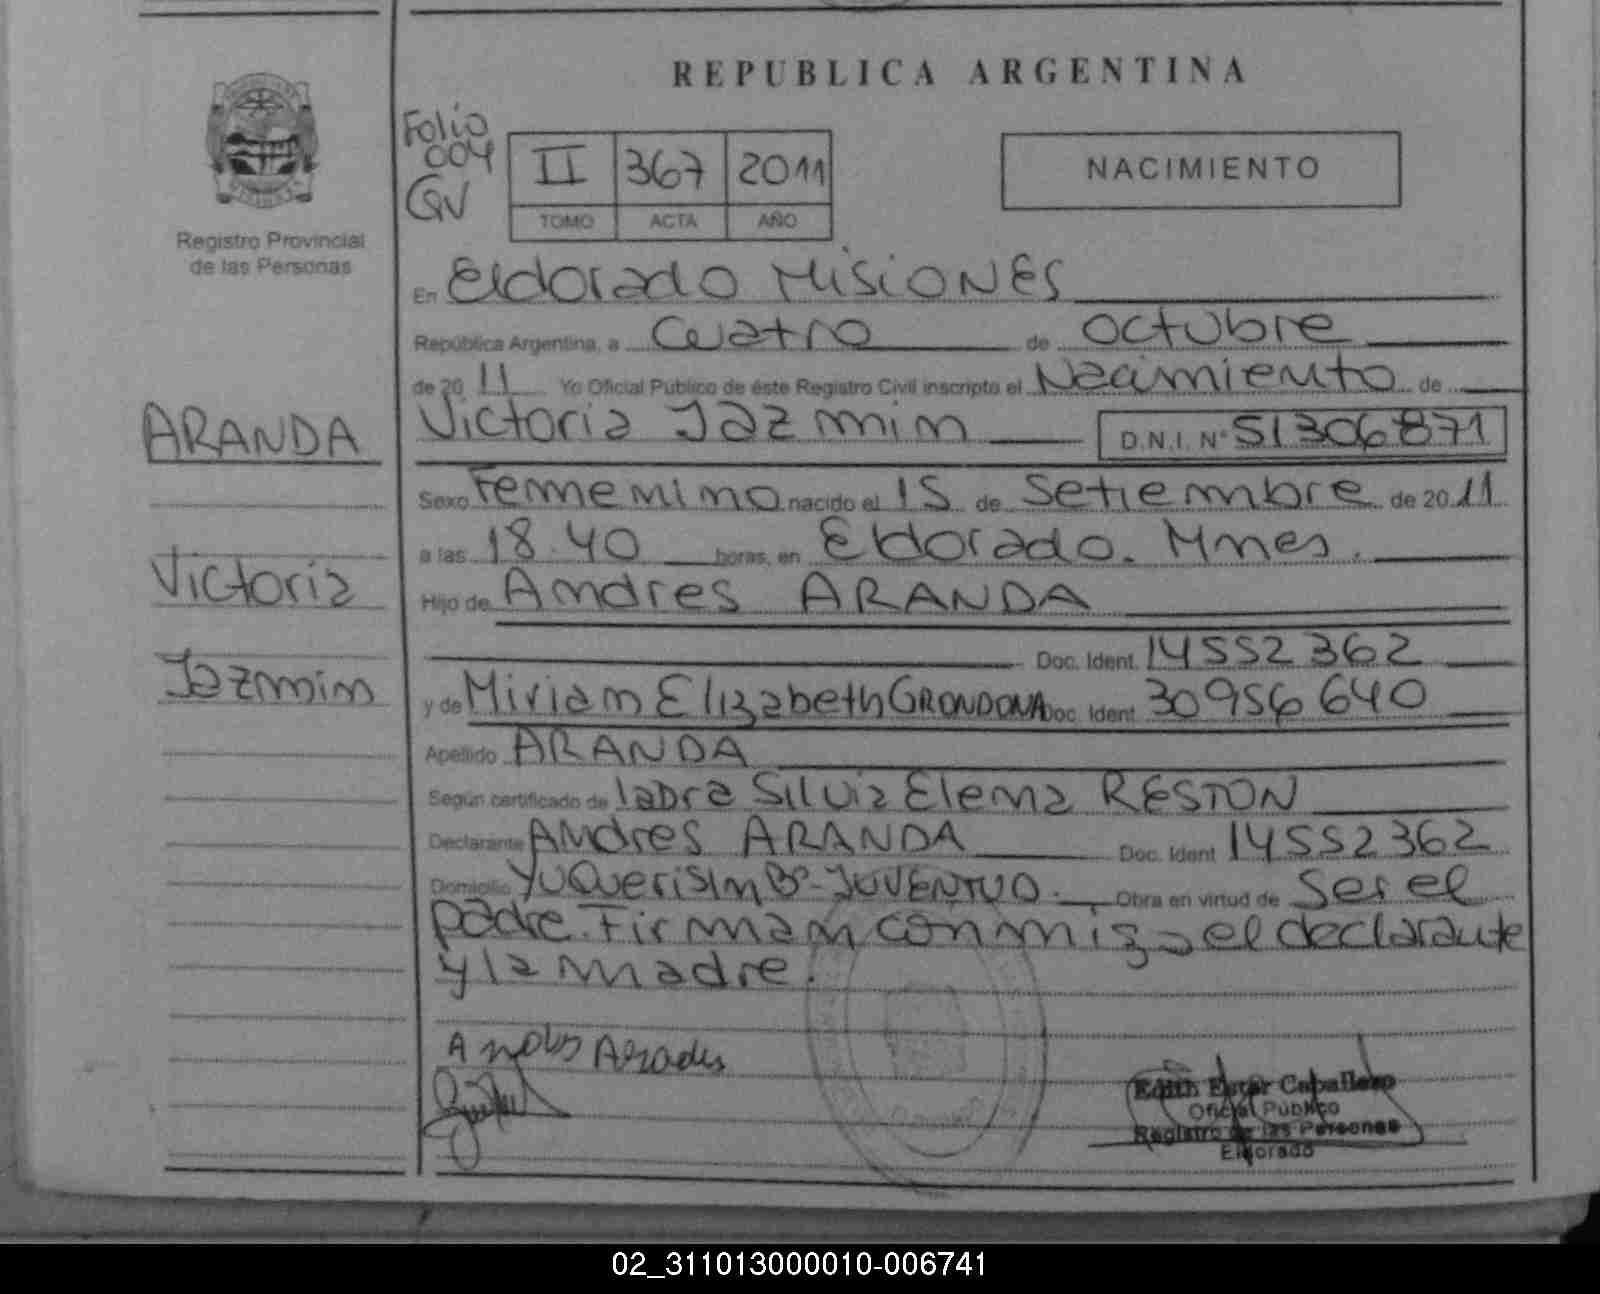 REPUBLICA ARGENTINA
Folio
004
II 367 2011
TOMO ACTA AÑO
NACIMIENTO
Registro Provincial
de las Personas
En Eldorado Misiones
República Argentina, a Cuatro de octubre
de 2011 Yo Oficial Público de éste Registro Civil inscripto el Nacimiento de
ARANDA
Victoria Jazmin D.N.I. N° 51306871
Sexo Femenino nacido el 15 de Setiembre de 2011
a las 18.40 horas, en Eldorado. Mnes.
Victoria
Hijo de Andres ARANDA
Doc. Ident. 14552362
Jazmin
y de Miriam Elizabeth GRONDONA Doc. Ident. 30956640
Apellido ARANDA
Según certificado de labra Silvia Elena RESTON
Declarante Andres ARANDA Doc. Ident 14552362
Domicilio Yuqueri S/n B°- JUVENTUD. Obra en virtud de Ser el
padre. Firman conmigo el declarante
y la madre.
Edith Ester Caballero
Oficial Público
Registro de las Personas
Eldorado
02_311013000010-006741